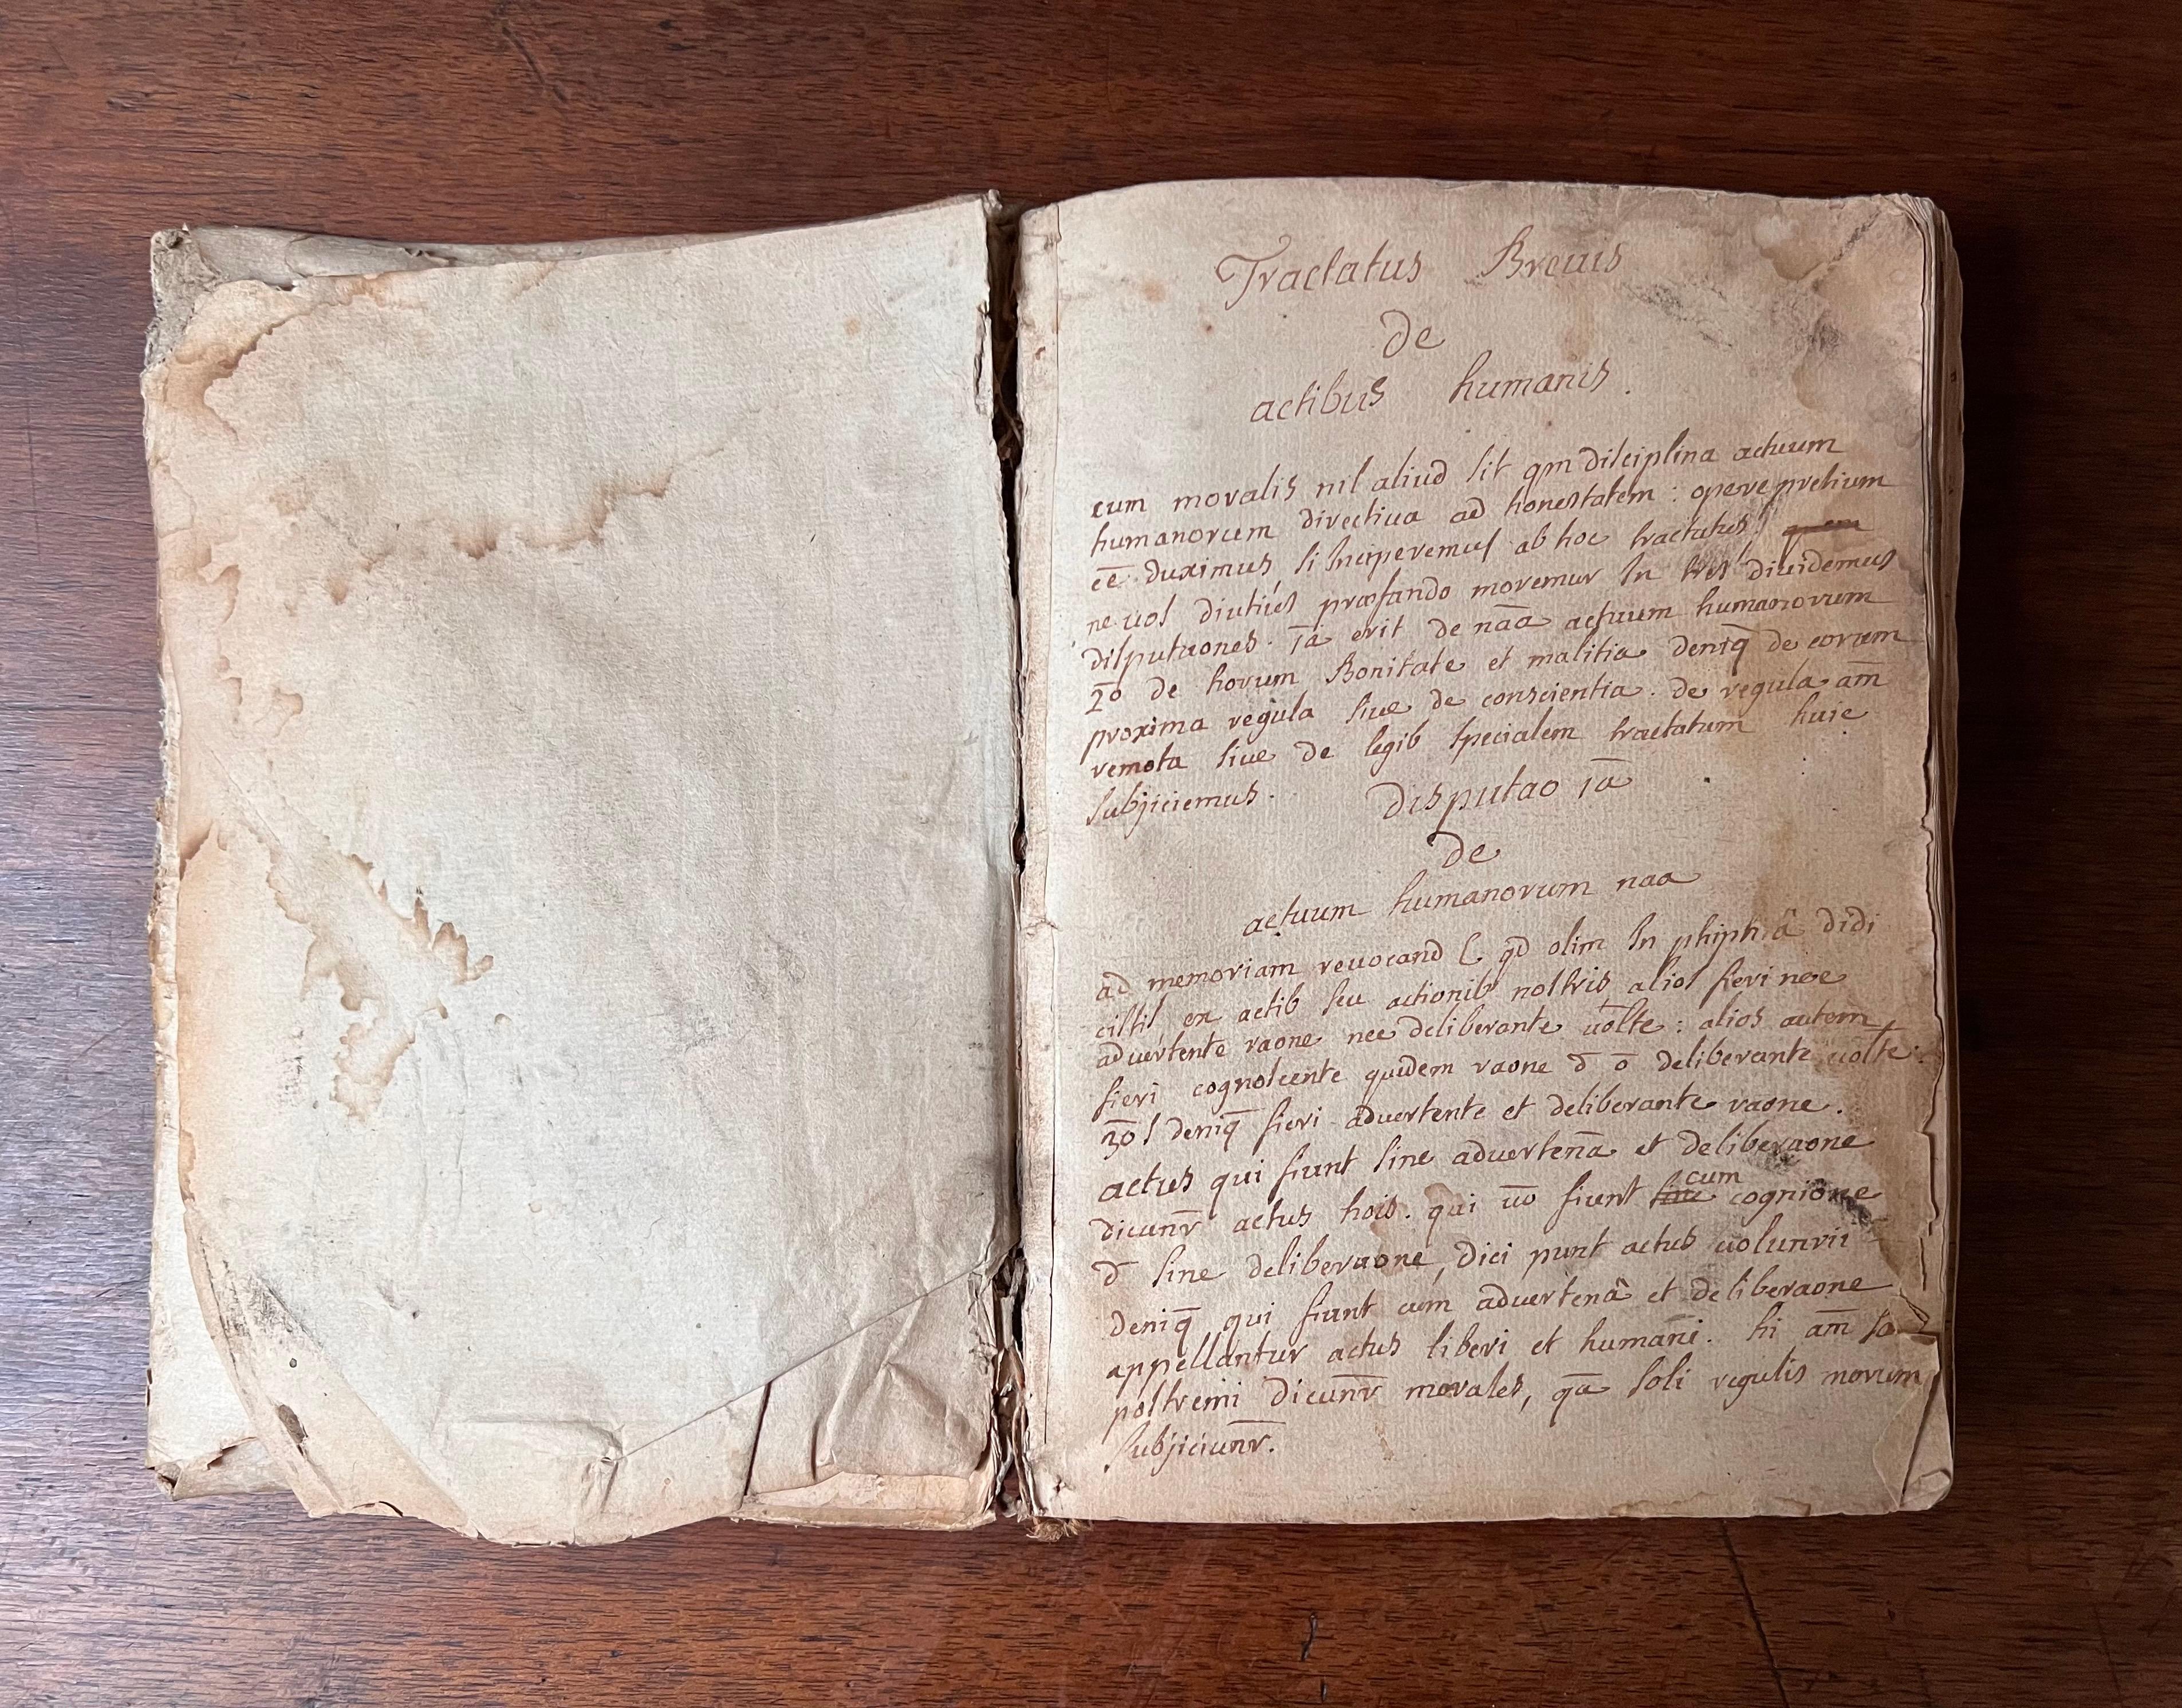 Tractatus Brevis
de
actibus humanis.
cum moralis nil aliud sit qm disciplina actuum
humanorum directiva ad honestatem: opere pretium
eē duximus si Inciperemus ab hoc tractatus
ne vos diutiùs præfando moremur In tres dividemus
disputaones. 1ā erit de nāā actuum humanorum
2ō de horum Bonitate et malitia deniq̄ de eorum
proxima regula sive de conscientia. de regula am̄
remota sive de legib specialem tractatum huic
subjiciemus.
disputao 1ā
de
actuum humanorum naa
ad memoriam revocand qd olim In phiphiâ didi
cistis ex actib seu actionib nostris alios fieri nec
advertente raone nec deliberante volt̄e: alios autem
fieri cognoscente quidem raone d̄ ō deliberante volt̄e:
3ōs deniq̄ fieri advertente et deliberante raone.
actus qui fiunt sine advertenā et deliberaone
dicunr̄ actus hois. qui vō fiunt sine cum cognione
d̄ sine deliberaone, dici punt actus volunrii
deniq̄ qui fiunt cum advertenâ et deliberaone
appellantur actus liberi et humani. hi am̄
postremi dicunr̄ morales, qā soli regulis morum
subjiciunr̄.